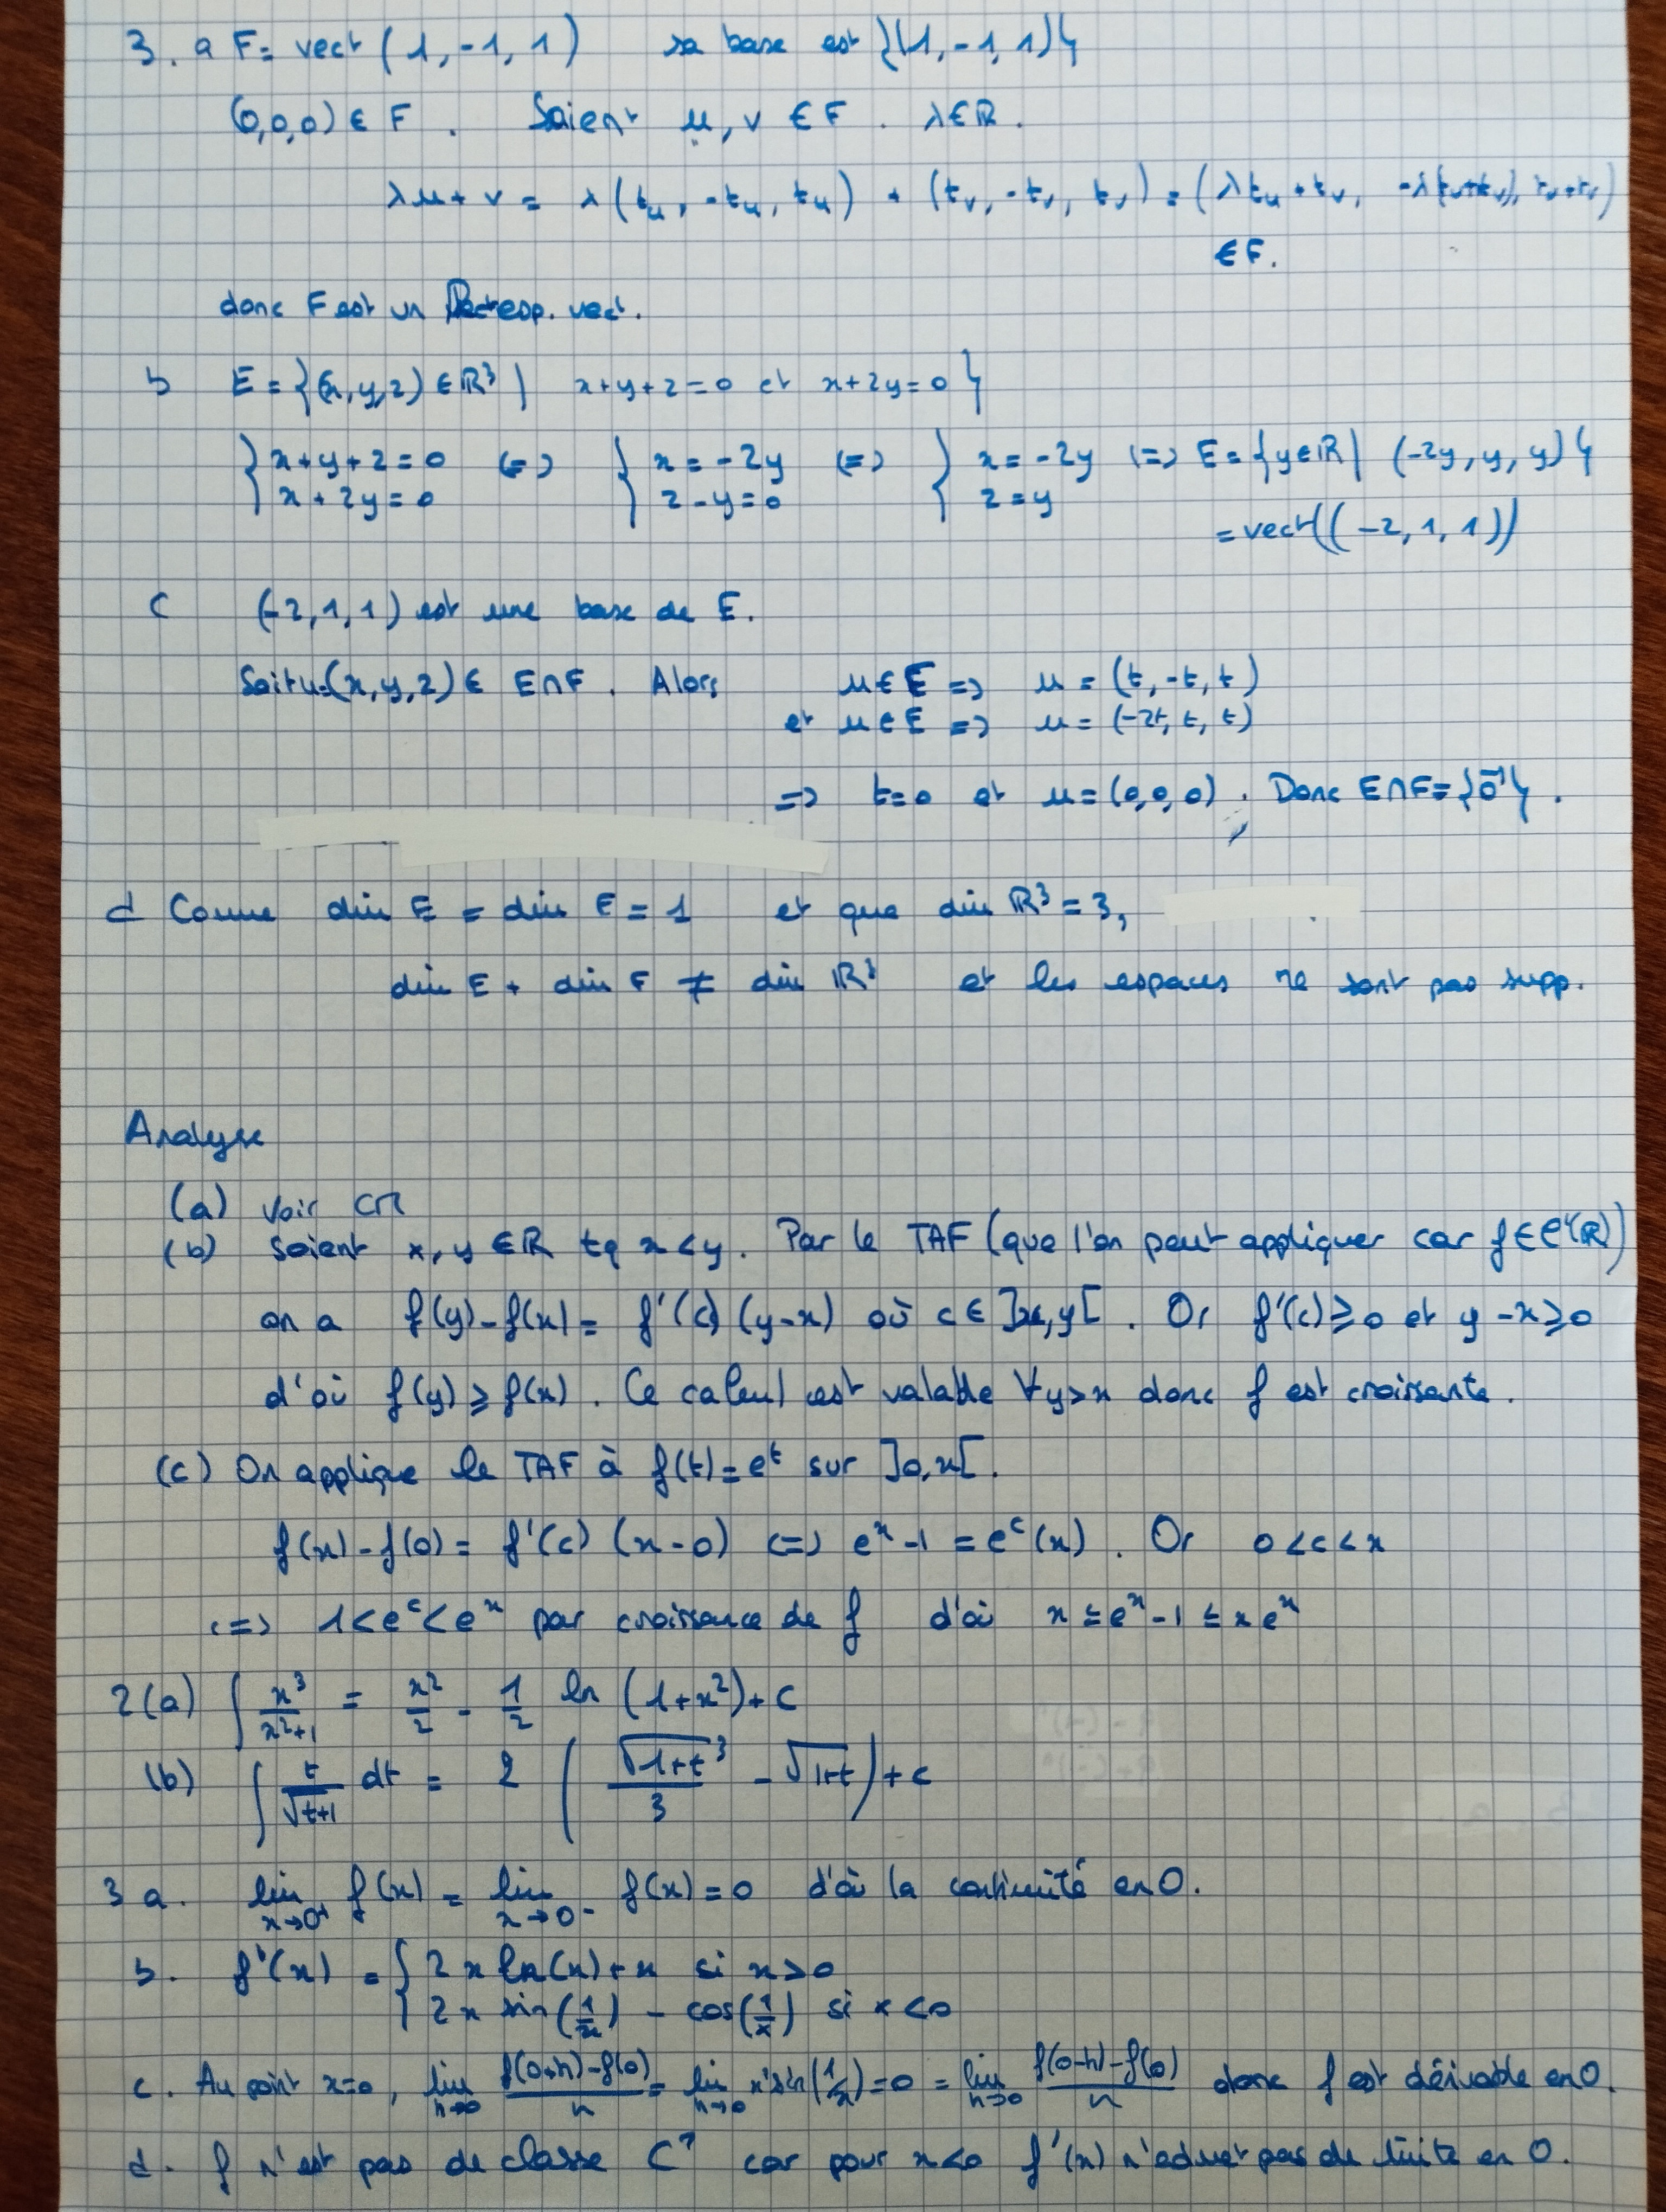 3. a F = vect (1, -1, 1) sa base est {(1, -1, 1)}
(0,0,0) ∈ F. Soient u, v ∈ F. λ∈ℝ.
λu + v = λ(t_u, -t_u, t_u) + (t_v, -t_v, t_v) = (λt_u + t_v,
∈ F.
donc F est un esp. vect.
b E = {(x,y,z) ∈ ℝ³ | x+y+z=0 et x+2y=0}
{x+y+z=0 (=) {x=-2y (=) {x=-2y (=) E = {y∈ℝ | (-2y, y, y)}
x+2y=0 z-y=0 z=y
= vect((-2, 1, 1))
c (-2, 1, 1) est une base de E.
Soit u=(x,y,z) ∈ E∩F. Alors u ∈ E => u = (t, -t, t)
et u ∈ E => u = (-2t, t, t)
=> t=0 et u=(0,0,0). Donc E∩F={0⃗}.
d Comme dim E = dim E = 1 et que dim ℝ³ = 3,
dim E + dim F ≠ dim ℝ³ et les espaces ne sont pas supp.
Analyse
(a) voir CM
(b) Soient x, y ∈ ℝ tq x<y. Par le TAF (que l'on peut appliquer car f∈C¹(ℝ))
on a f(y)-f(x) = f'(c)(y-x) où c∈]x,y[. Or f'(c)≥0 et y-x≥0
d'où f(y)≥f(x). Ce calcul est valable ∀y>x donc f est croissante.
(c) On applique le TAF à f(t)=e^t sur ]0,x[.
f(x)-f(0) = f'(c)(x-0) (=) e^x-1 = e^c(x). Or 0<c<x
(=) 1<e^c<e^x par croissance de f d'où x ≤ e^x-1 ≤ xe^x
2(a) ∫ x³/(x²+1) = x²/2 - 1/2 ln (1+x²)+C
(b) ∫ t/√(t+1) dt = 2 (√(1+t)³/3 - √(1+t)) + c
3 a. lim x→0⁺ f(x) = lim x→0⁻ f(x) = 0 d'où la continuité en 0.
b. f'(x) = {2x ln(x)+x si x>0
2x sin(1/x) - cos(1/x) si x<0
c. Au point x=0, lim h→0 (f(0+h)-f(0))/h = lim h→0 = 0 = lim h→0 (f(0-h)-f(0))/h donc f est dérivable en 0.
d. f n'est pas de classe C¹ car pour x<0 f'(x) n'admet pas de limite en 0.